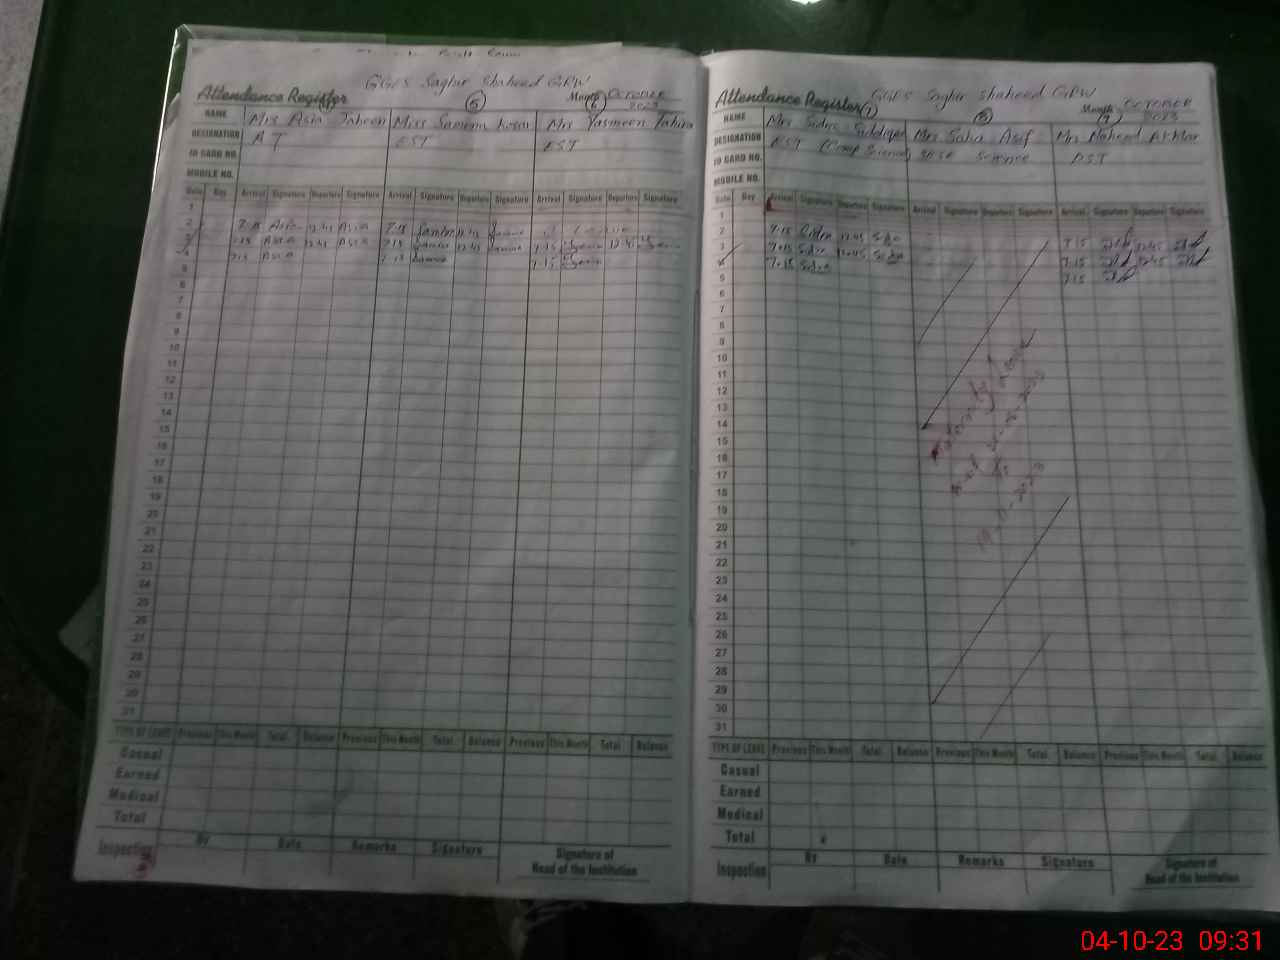 GGES Saghir Shaheed GRW
Attendance Register
5
Month 6 October
2023
NAME Mrs Asia Jabeen Miss Samina Kosar Mrs Yasmeen Tahira
DESIGNATION AT EST EST
ID CARD NO.
MOBILE NO.
Date Day Arrival Signature Departure Signature Arrival Signature Departure Signature Arrival Signature Departure Signature
1
2 7.15 Asia 12.45 Asia 7.15 Samina 12.45 Samina
3 7.15 Asia 12.45 Asia 7.15 Samina 12.45 Samina 7.15 Yasmin 12.45 Yasmin
4 7.15 Asia 7.15 Samina 7.15 Yasmin
5
6
7
8
9
10
11
12
13
14
15
16
17
18
19
20
21
22
23
24
25
26
27
28
29
30
31
TYPE OF LEAVE Previous This Month Total Balance Previous This Month Total Balance Previous This Month Total Balance
Casual
Earned
Medical
Total
Inspection By Date Remarks Signature Signature of
Head of the Institution
GGES Saghir Shaheed GRW
Attendance Register 7
8
Month 9 October
2023
NAME Mrs Sidra Siddique Mrs Saba Asif Mrs Naheed Akhtar
DESIGNATION EST (Comp Science) SESE Science PST
ID CARD NO.
MOBILE NO.
Date Day Arrival Signature Departure Signature Arrival Signature Departure Signature Arrival Signature Departure Signature
1
2 7.15 Sidra 12.45 Sidra 7.15 12.45
3 7.15 Sidra 12.45 Sidra 7.15 12.45
4 7.15 Sidra 7.15
5
6
7
8
9
10
11
12
13
14
15
16
17
18
19
20
21
22
23
24
25
26
27
28
29
30
31
Maternity Leave
to
TYPE OF LEAVE Previous This Month Total Balance Previous This Month Total Balance Previous This Month Total Balance
Casual
Earned
Medical
Total
Inspection By Date Remarks Signature Signature of
Head of the Institution
04-10-23 09:31